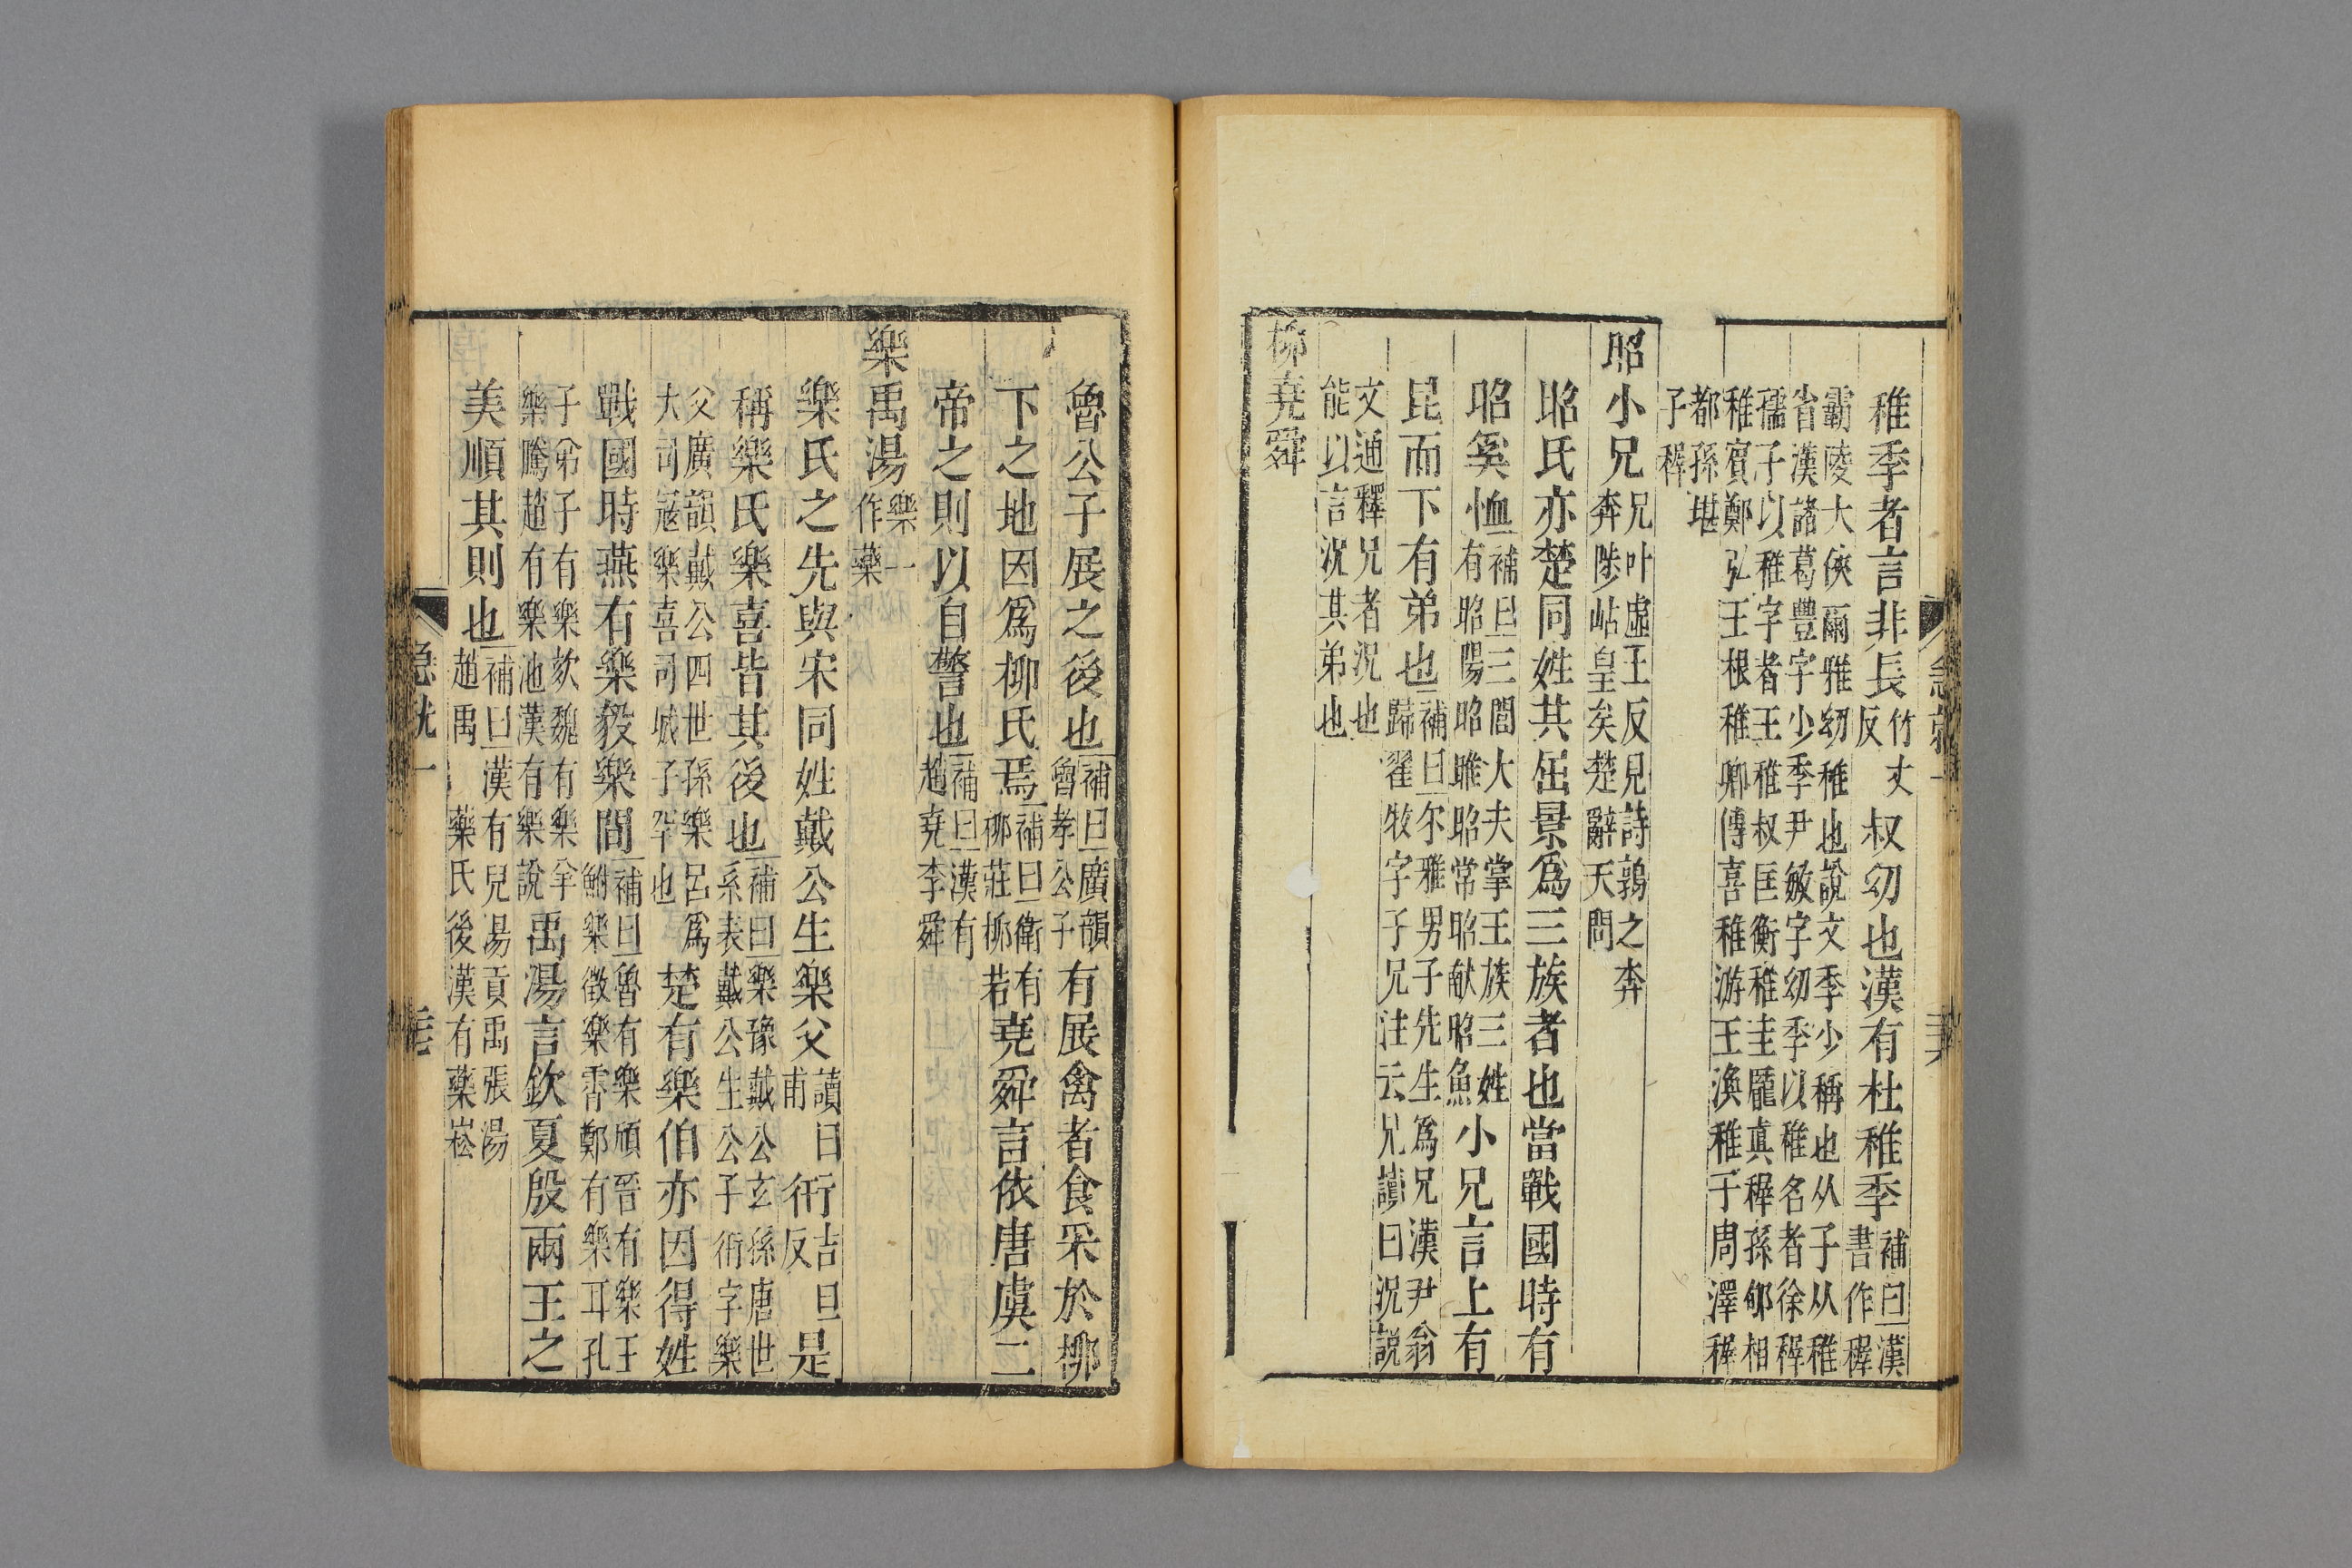 稚季者言非長竹丈反叔幼也漢有杜稚季補曰漢書作穉
霸陵大俠爾雅幼稚也說文季少稱也从子从稚
省漢諸葛豐字少季尹敏字幼季以稚名者徐穉
孺子以稚字者王稚叔匡衡稚圭龎真穉孫郇相
稚賓鄭弘王根稚卿傅喜稚游王渙稚子周澤穉
都孫堪
子穉
昭小兄兄叶虛王反見詩鶉之奔奔陟岵皇矣楚辭天問
昭氏亦楚同姓其屈景爲三族者也當戰國時有
昭奚恤補曰三閭大夫掌王族三姓有昭陽昭雎昭常昭献昭魚小兄言上有
昆而下有弟也補曰尔雅男子先生爲兄漢尹翁歸翟牧字子兄注云兄讀曰況説
文通釋兄者況也
能以言況其弟也
柳堯舜
魯公子展之後也補曰廣韻魯孝公子有展禽者食采於栁
下之地因爲柳氏焉補曰衛有栁莊栁若堯舜言依唐虞二
帝之則以自警也補曰漢有趙堯李舜
樂禹湯樂一作藥
樂氏之先與宋同姓戴公生樂父讀曰甫衎吉旦反是
稱樂氏樂喜皆其後也補曰樂豫戴公玄孫唐世系表戴公生公子衎字樂
父廣韻戴公四世孫樂呂爲大司寇樂喜司城子罕也楚有樂伯亦因得姓
戰國時燕有樂毅樂間補曰魯有樂頎晉有樂王鮒樂徵樂霄鄭有樂耳孔
子弟子有樂欬魏有樂羊樂騰趙有樂池漢有樂說禹湯言欽夏殷兩王之
美順其則也補曰漢有兒湯貢禹張湯趙禹藥氏後漢有藥崧
急就一